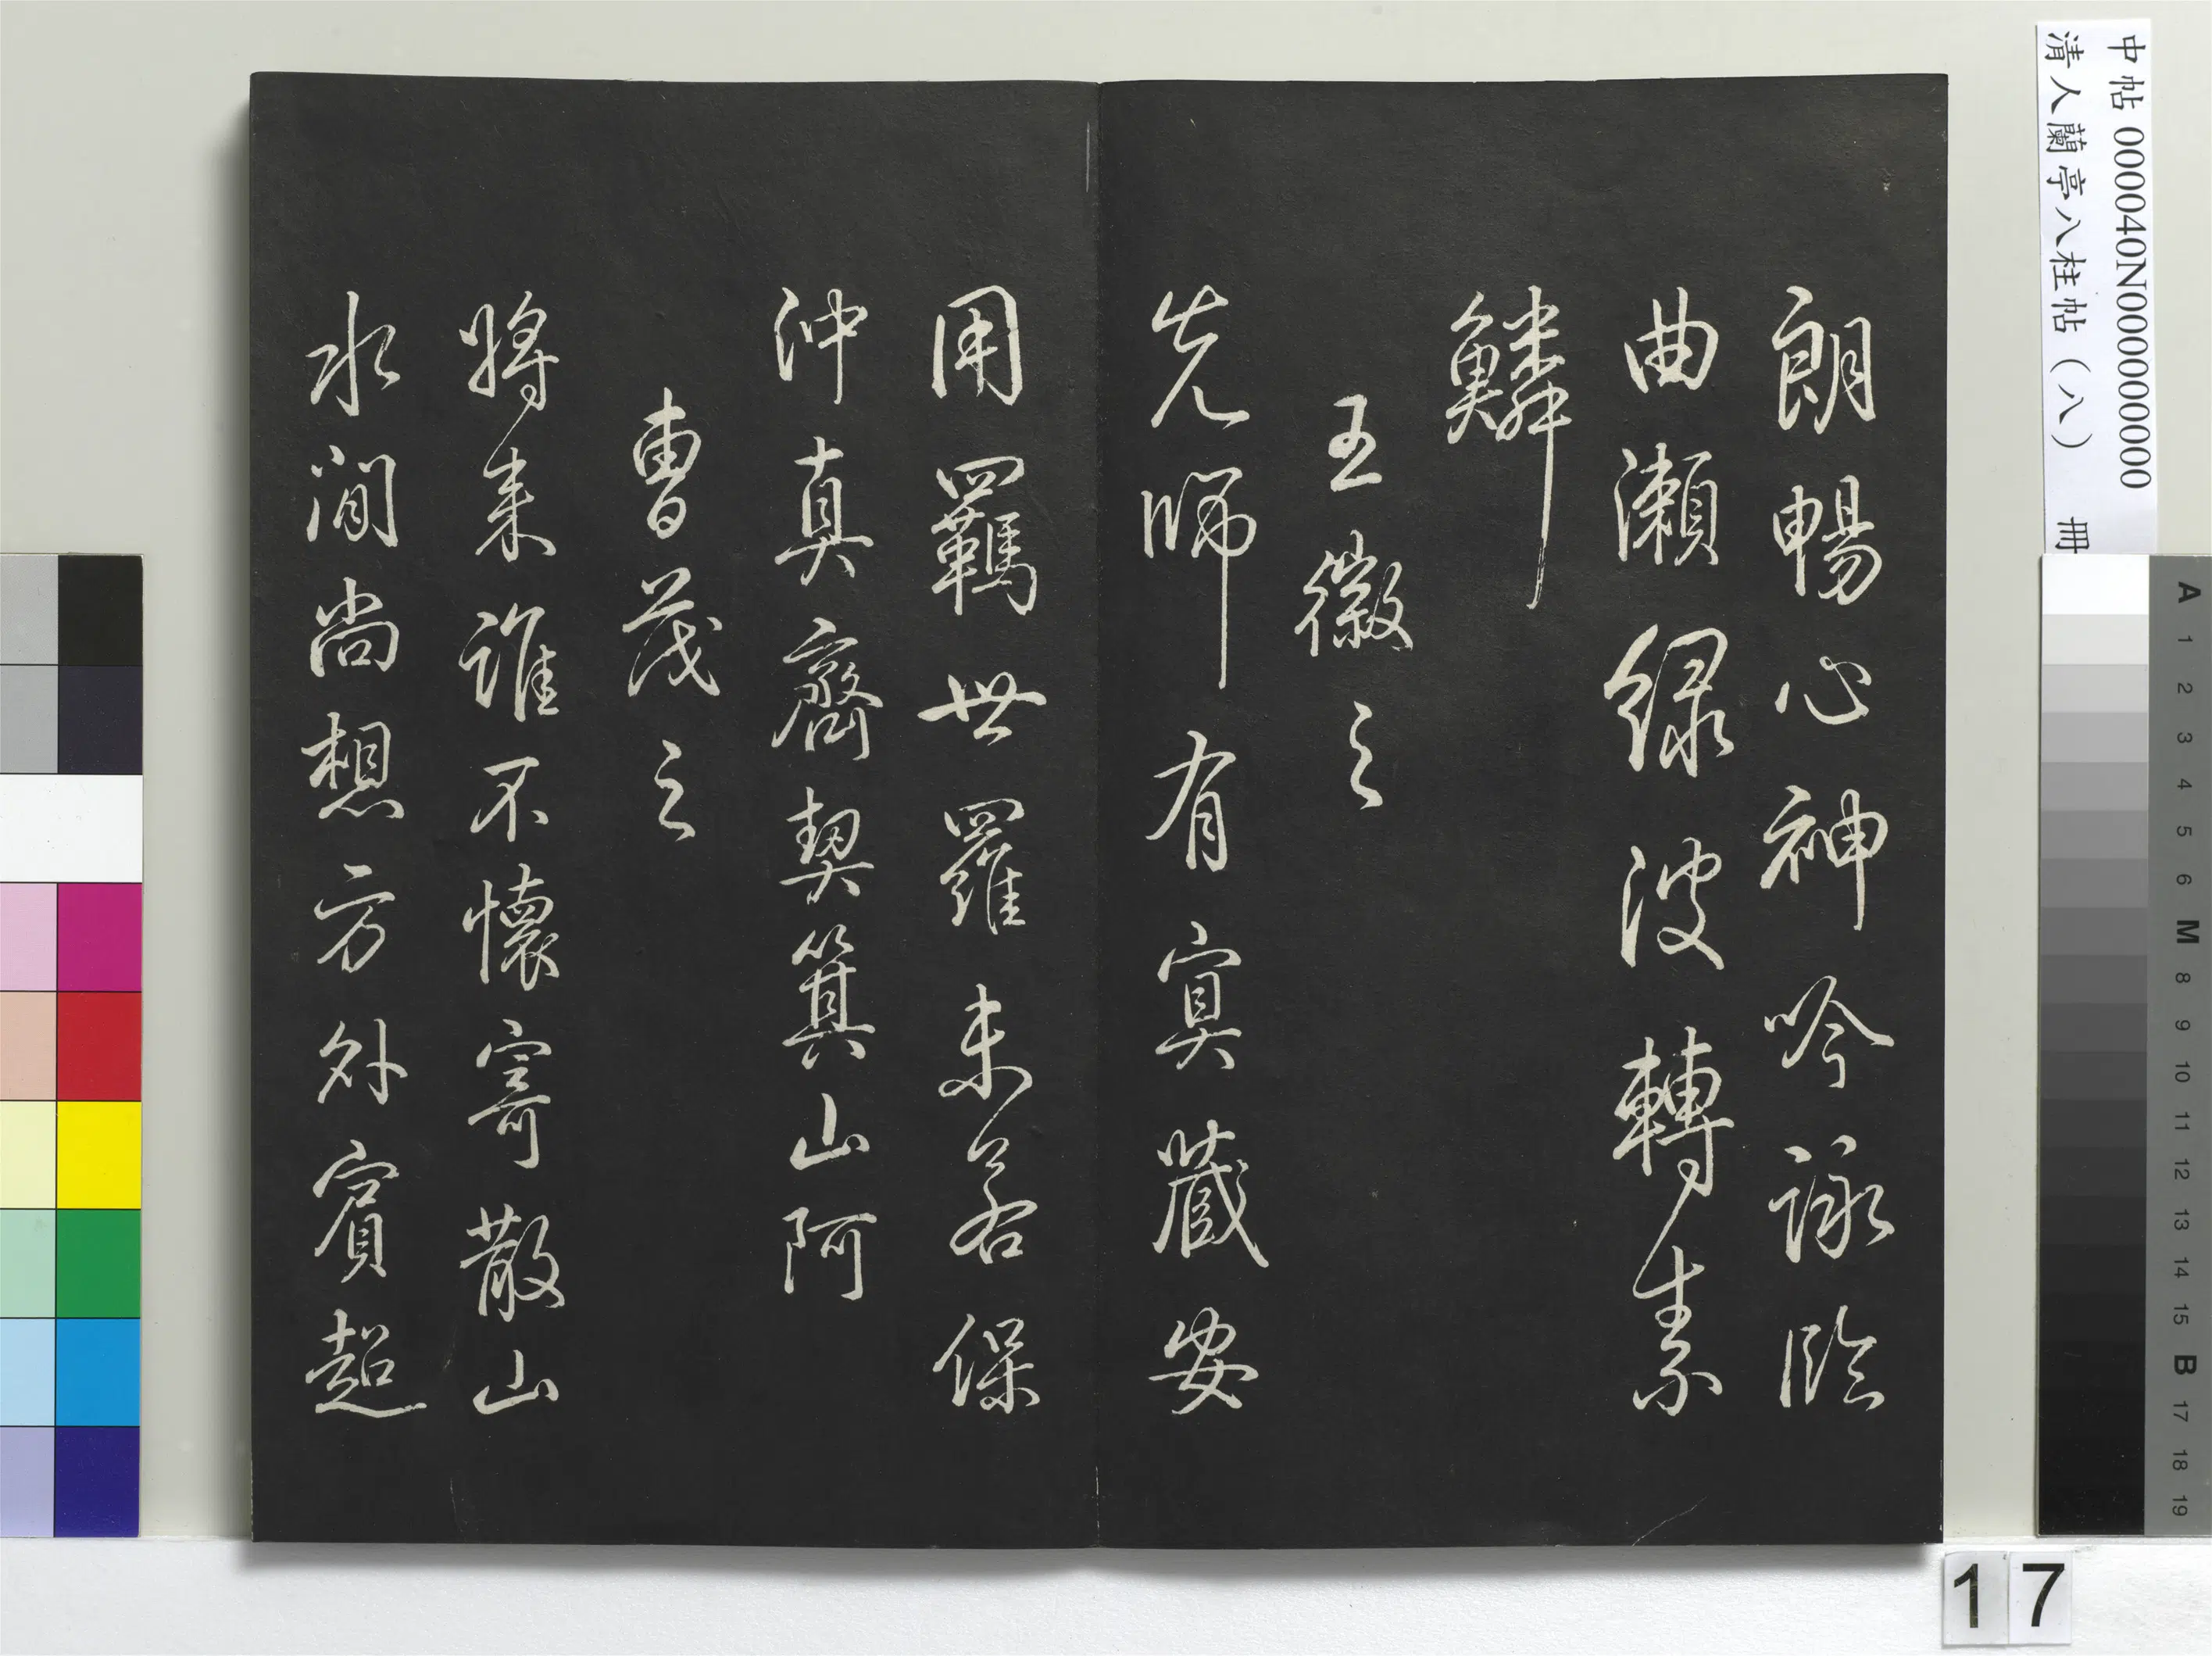 朗暢心神吟詠臨
曲瀨綠波轉素
鱗
王徽之
先師有冥藏安
用羈世羅未若保
沖真齋契箕山阿
曹茂之
時来誰不懷寄散山
水間尚想方外賓超
中帖 000040N000000000
清人蘭亭八柱帖（八） 冊
A 1 2 3 4 5 6 M 8 9 10 11 12 13 14 15 B 17 18 19
17